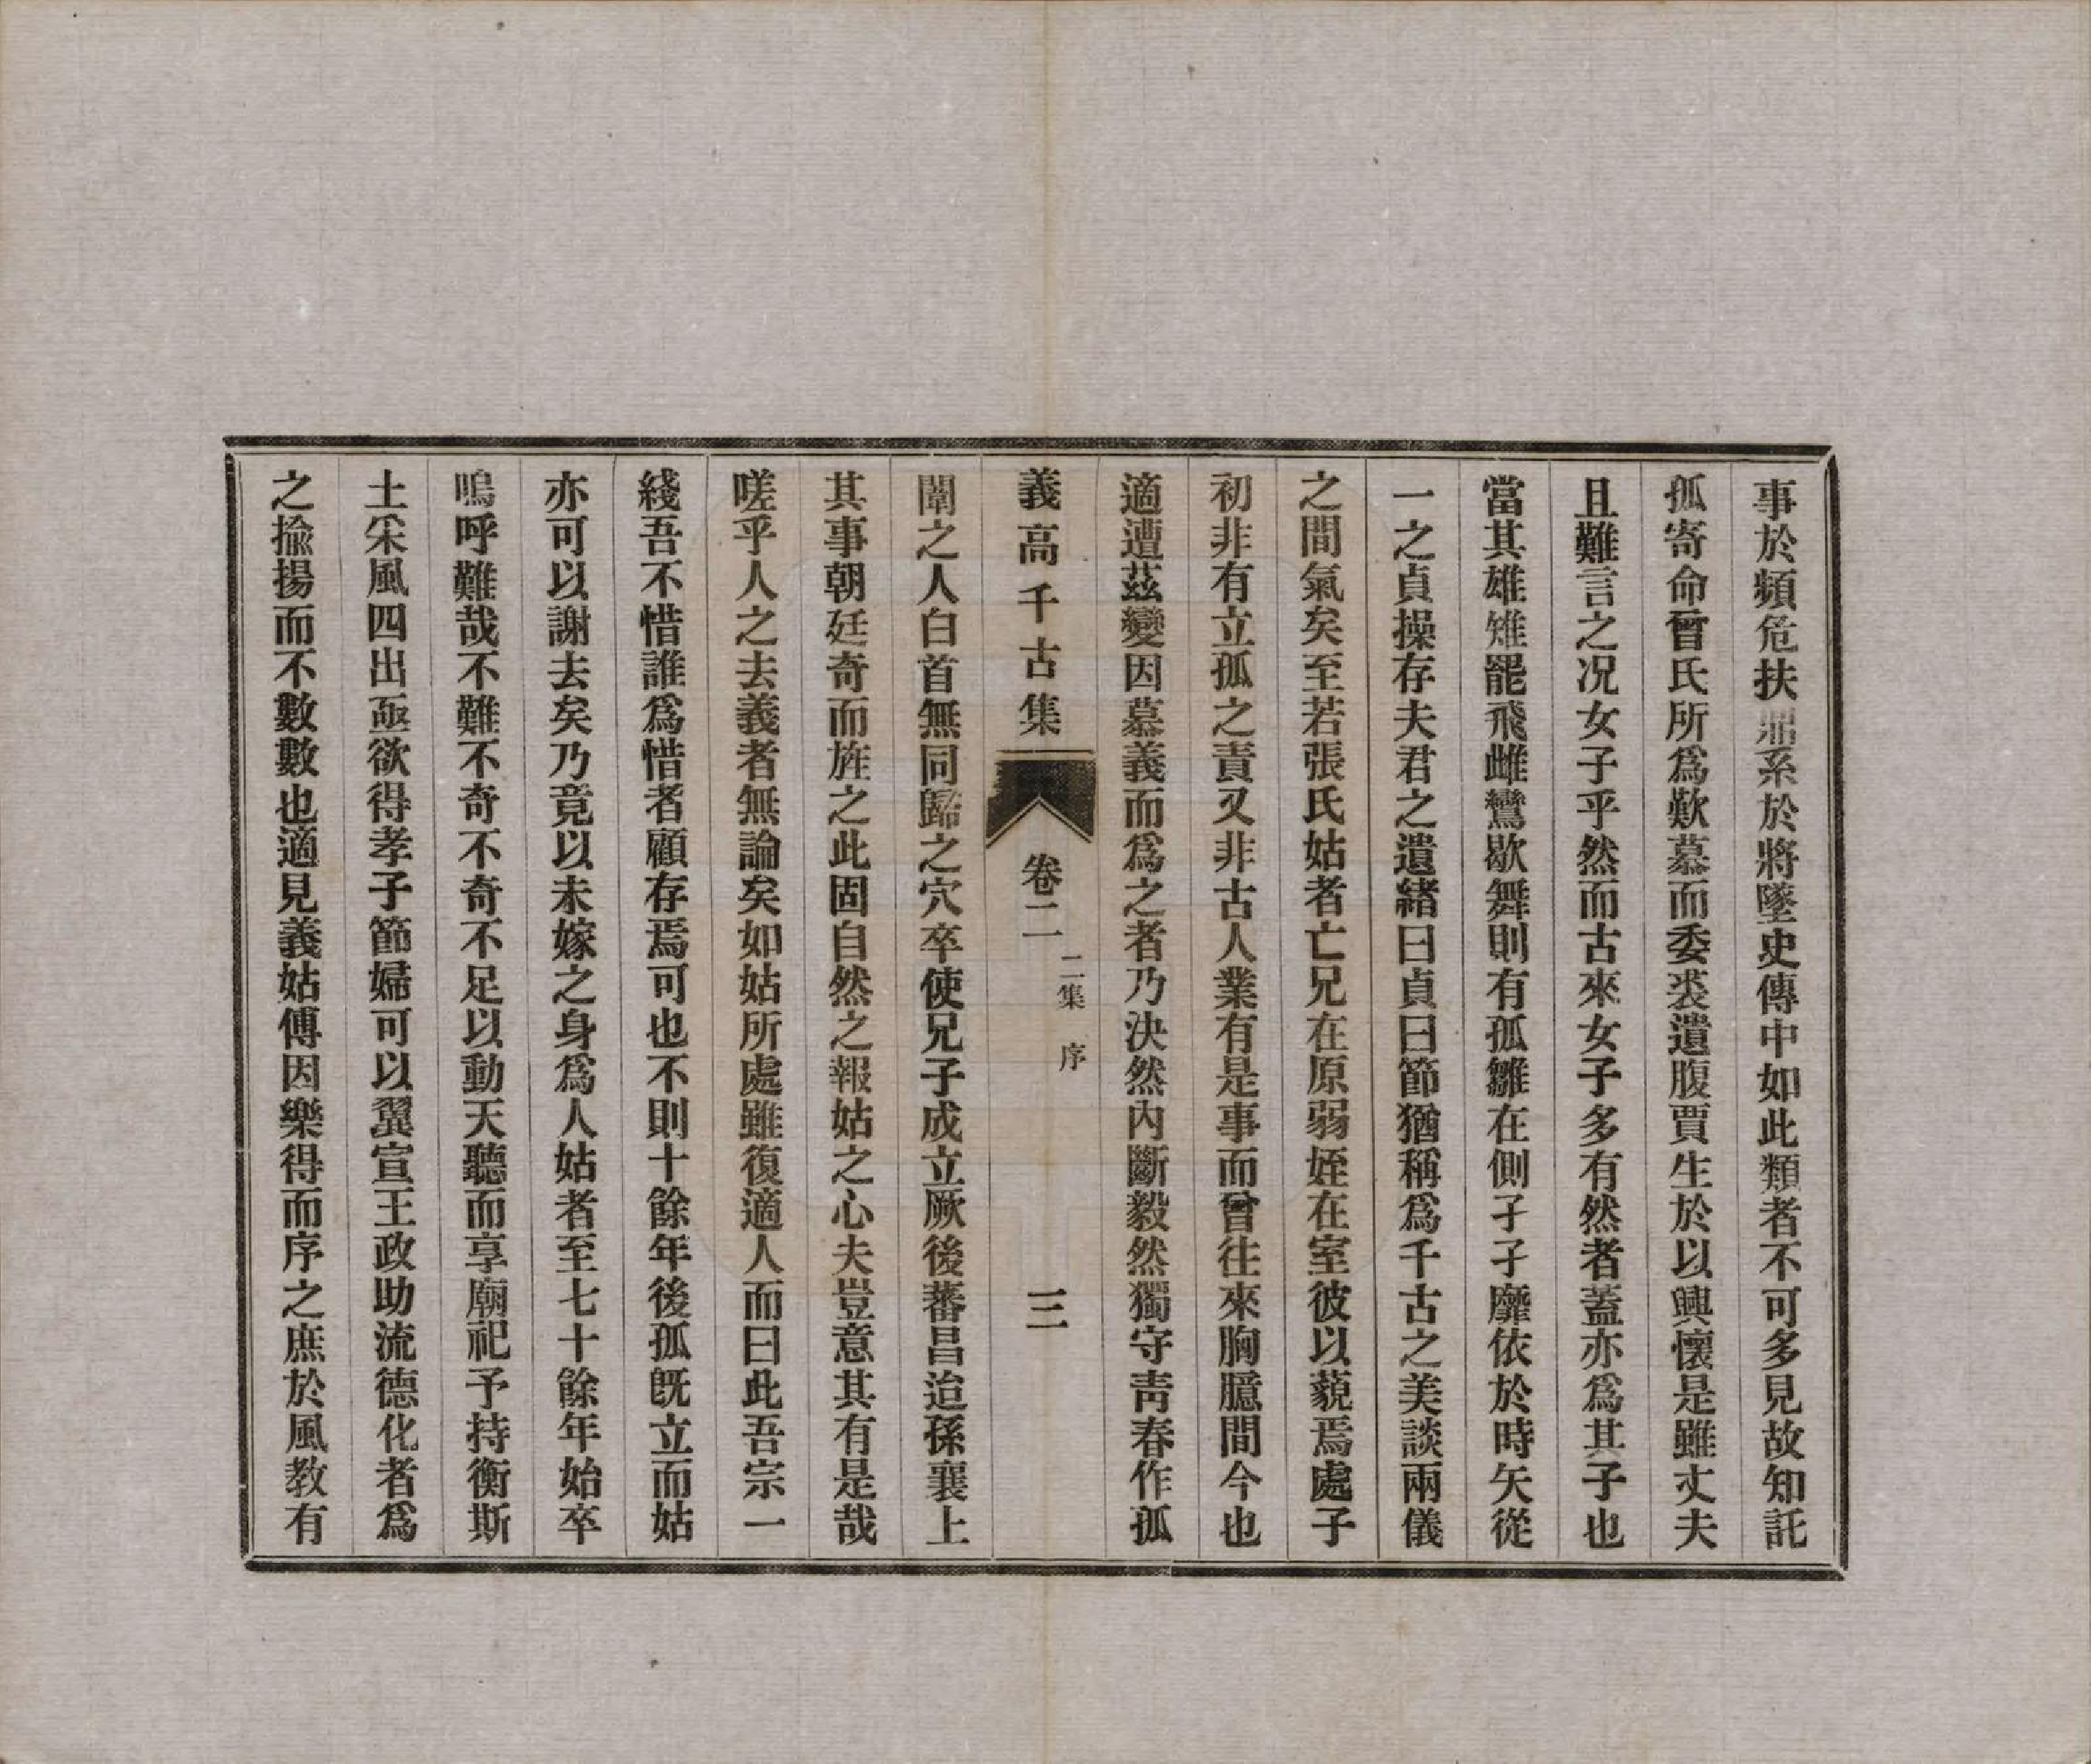 事於頻危扶㵢系於將墜史傳中如此類者不可多見故知託
孤寄命曾氏所爲歎慕而委裘遺腹賈生於以興懷是雖丈夫
且難言之况女子乎然而古來女子多有然者蓋亦爲其子也
當其雄雉罷飛雌鸞歇舞則有孤雛在側孑孑靡依於時矢從
一之貞操存夫君之遺緒曰貞曰節猶稱爲千古之美談兩儀
之間氣矣至若張氏姑者亡兄在原弱姪在室彼以藐焉處子
初非有立孤之責又非古人業有是事而曾往來胸臆間今也
適遭茲變因慕義而爲之者乃決然內斷毅然獨守靑春作孤
義高千古集 卷二 二集 序 三
闈之人白首無同歸之穴卒使兄子成立厥後蕃昌迨孫襄上
其事朝廷奇而旌之此固自然之報姑之心夫豈意其有是哉
嗟乎人之去義者無論矣如姑所處雖復適人而曰此吾宗一
綫吾不惜誰爲惜者顧存焉可也不則十餘年後孤旣立而姑
亦可以謝去矣乃竟以未嫁之身爲人姑者至七十餘年始卒
嗚呼難哉不難不奇不奇不足以動天聽而享廟祀予持衡斯
土采風四出亟欲得孝子節婦可以翼宣王政助流德化者爲
之揄揚而不數數也適見義姑傳因樂得而序之庶於風教有